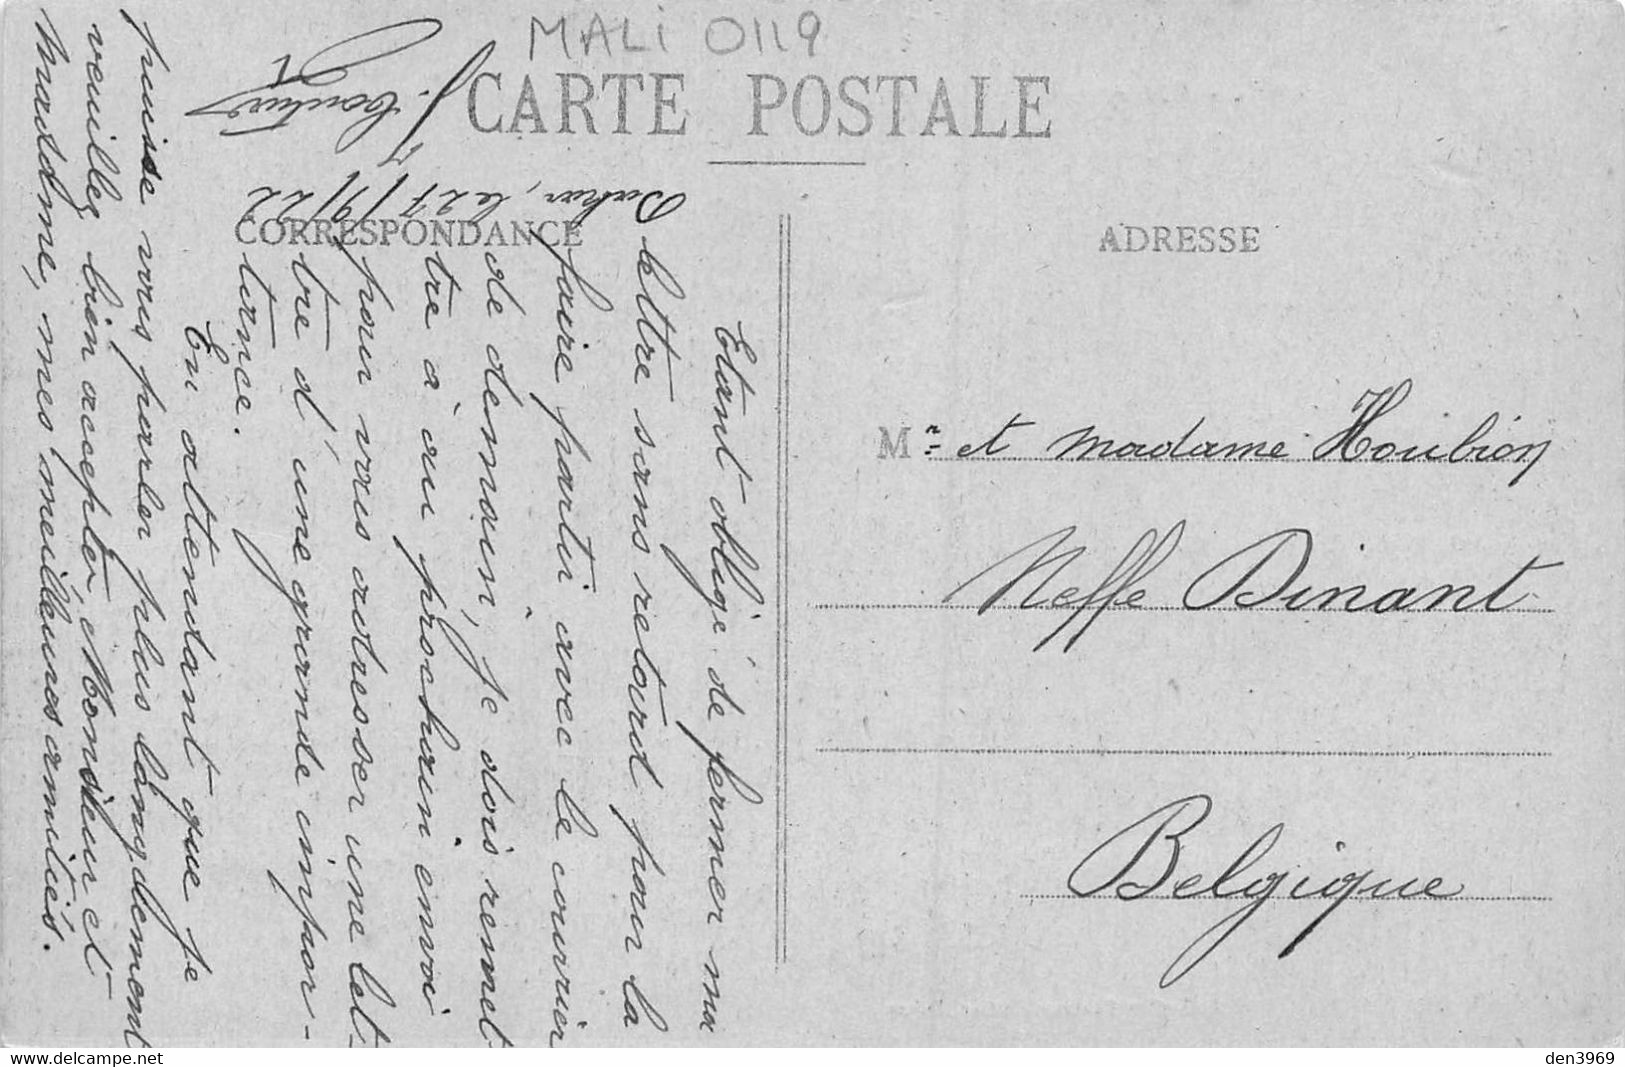 MALI 0119
CARTE POSTALE
CORRESPONDANCE
ADRESSE
Dakar, le 27/9/22
Etant obligé de fermer ma
lettre sans retard pour la
faire partir avec le courrier
de demain, je dois remet-
tre à un prochain envoi
pour vous adresser une let-
tre d'une grande impor-
tance.
En attendant que je
puisse vous parler plus longdement
veuillez bien accepter, Monsieur et
madame, mes meilleures amitiés.
Mr et madame Houbion
Neffe Dinant
Belgique
www.delcampe.net
den3969